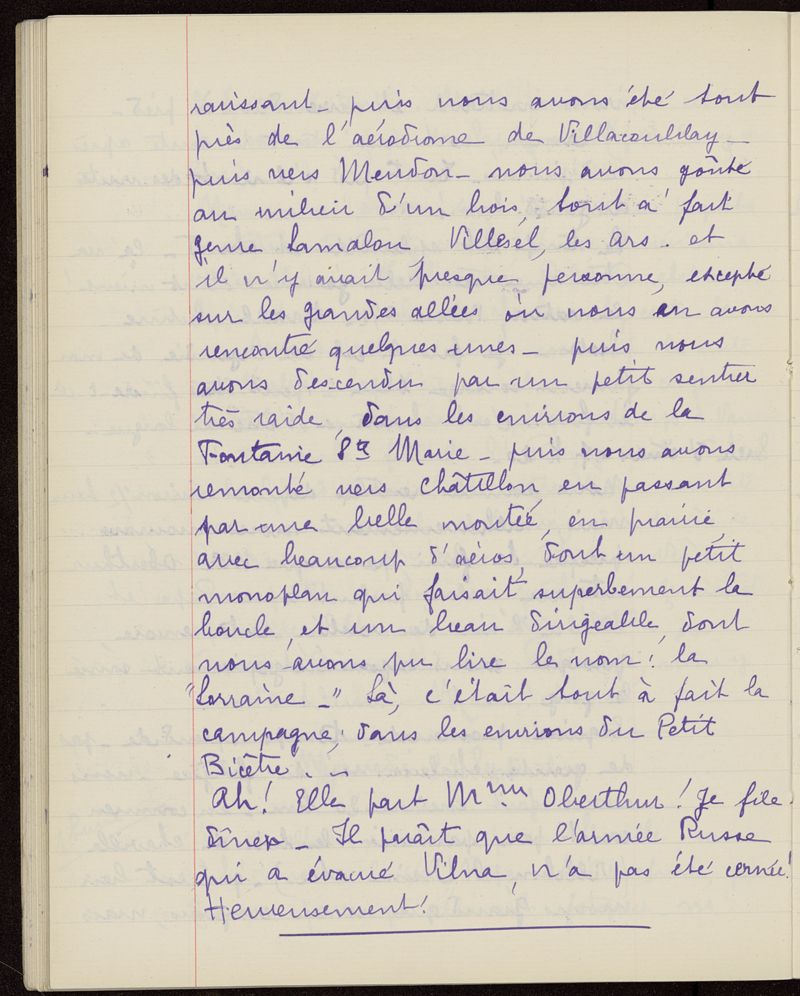 ravissant_ puis nous avons été tout
près de l'aérodrome de Villacoublay_
puis vers Meudon_ nous avons goûté
au milieu d'un bois, tout à fait
genre Lamalou Villesèl, les Ars. et
il n'y avait presque personne, excepté
sur les grandes allées où nous en avons
rencontré quelques unes_ puis nous
avons descendu par un petit sentier
très raide, dans les environs de la
Fontaine Ste Marie_ puis nous avons
remonté vers Châtillon, en passant
par une belle montée, en prairie,
avec beaucoup d'aéros, dont un petit
monoplan qui faisait superbement la
boucle, et un beau dirigeable, dont
nous avons pu lire le nom: la
"Lorraine_" Là, c'était tout à fait la
campagne, dans les environs du Petit
Bicêtre. _
Ah! Elle part Mme Oberthur! Je file
dîner_ Il paraît que l'armée Russe
qui a évacué Vilna, n'a pas été cernée!
Heureusement!